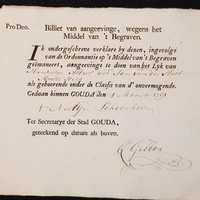 Pro Deo.
Billiet van aangeevinge, wegens het
Middel van 't Begraven.
Ik ondergeschreve verklare by desen, ingevolge
van de Ordonnantie op 't Middel van 't Begraven
geëmaneert, aangevinge te dien van het Lyk van
als gehoorende onder de Classis van d'onvermogende.
Gedaan binnen GOUDA den 1 Maart
Neeltje Schoonhoven
Ter Secretarye der Stad GOUDA,
geteekend op datum als boven.